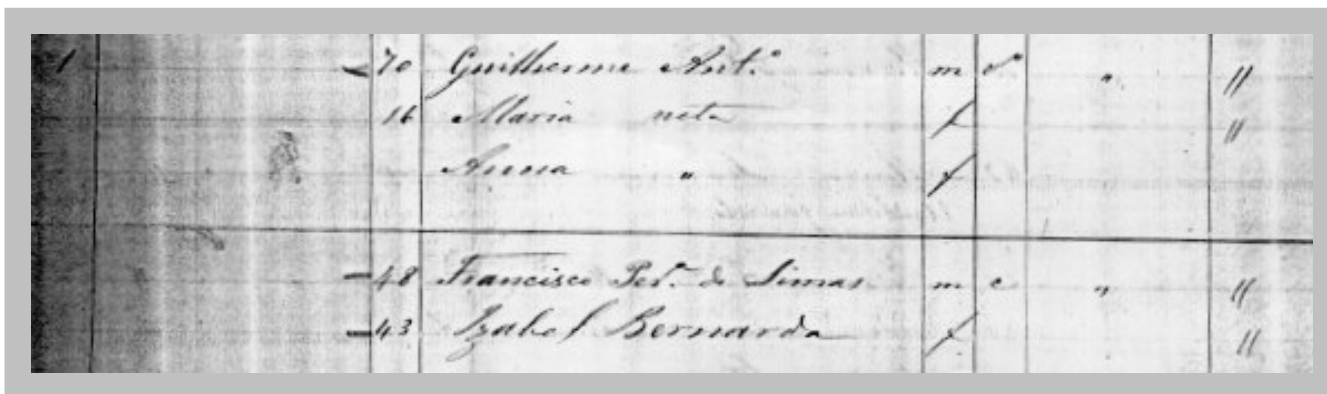 1 70 Guilherme Ant.º m v.º " "
16 Maria neta f "
Anna " f
48 Francisco Per.ª de Simas m c " "
43 Izabel Bernarda f "